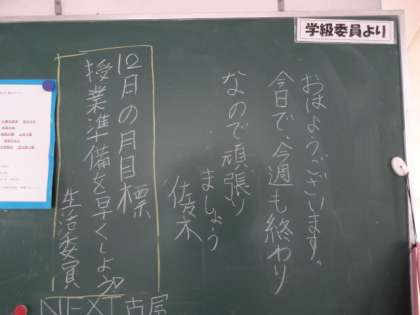 学級委員より
おはようございます。
今日で、今週も終わり
なので頑張り
ましょう
佐々木
12月の月目標
授業準備を早くしよう
生活委員
NEXT 古屋